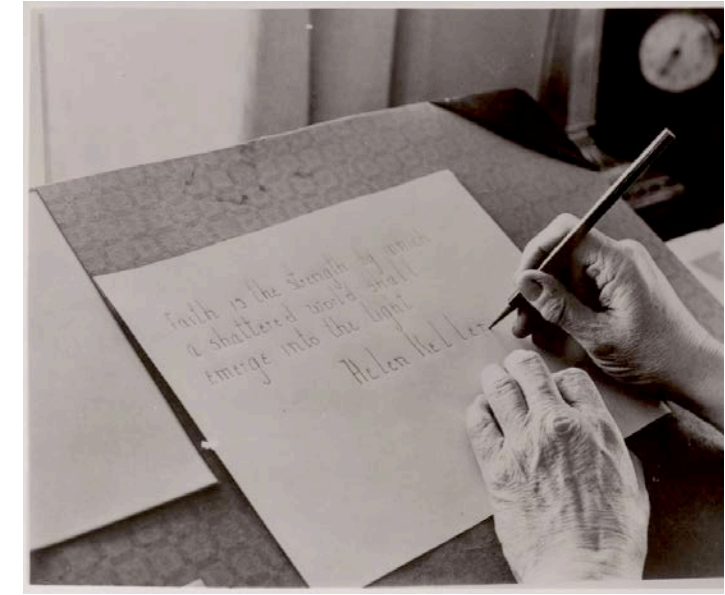 Faith is the strength by which
a shattered world shall
emerge into the light
Helen Keller